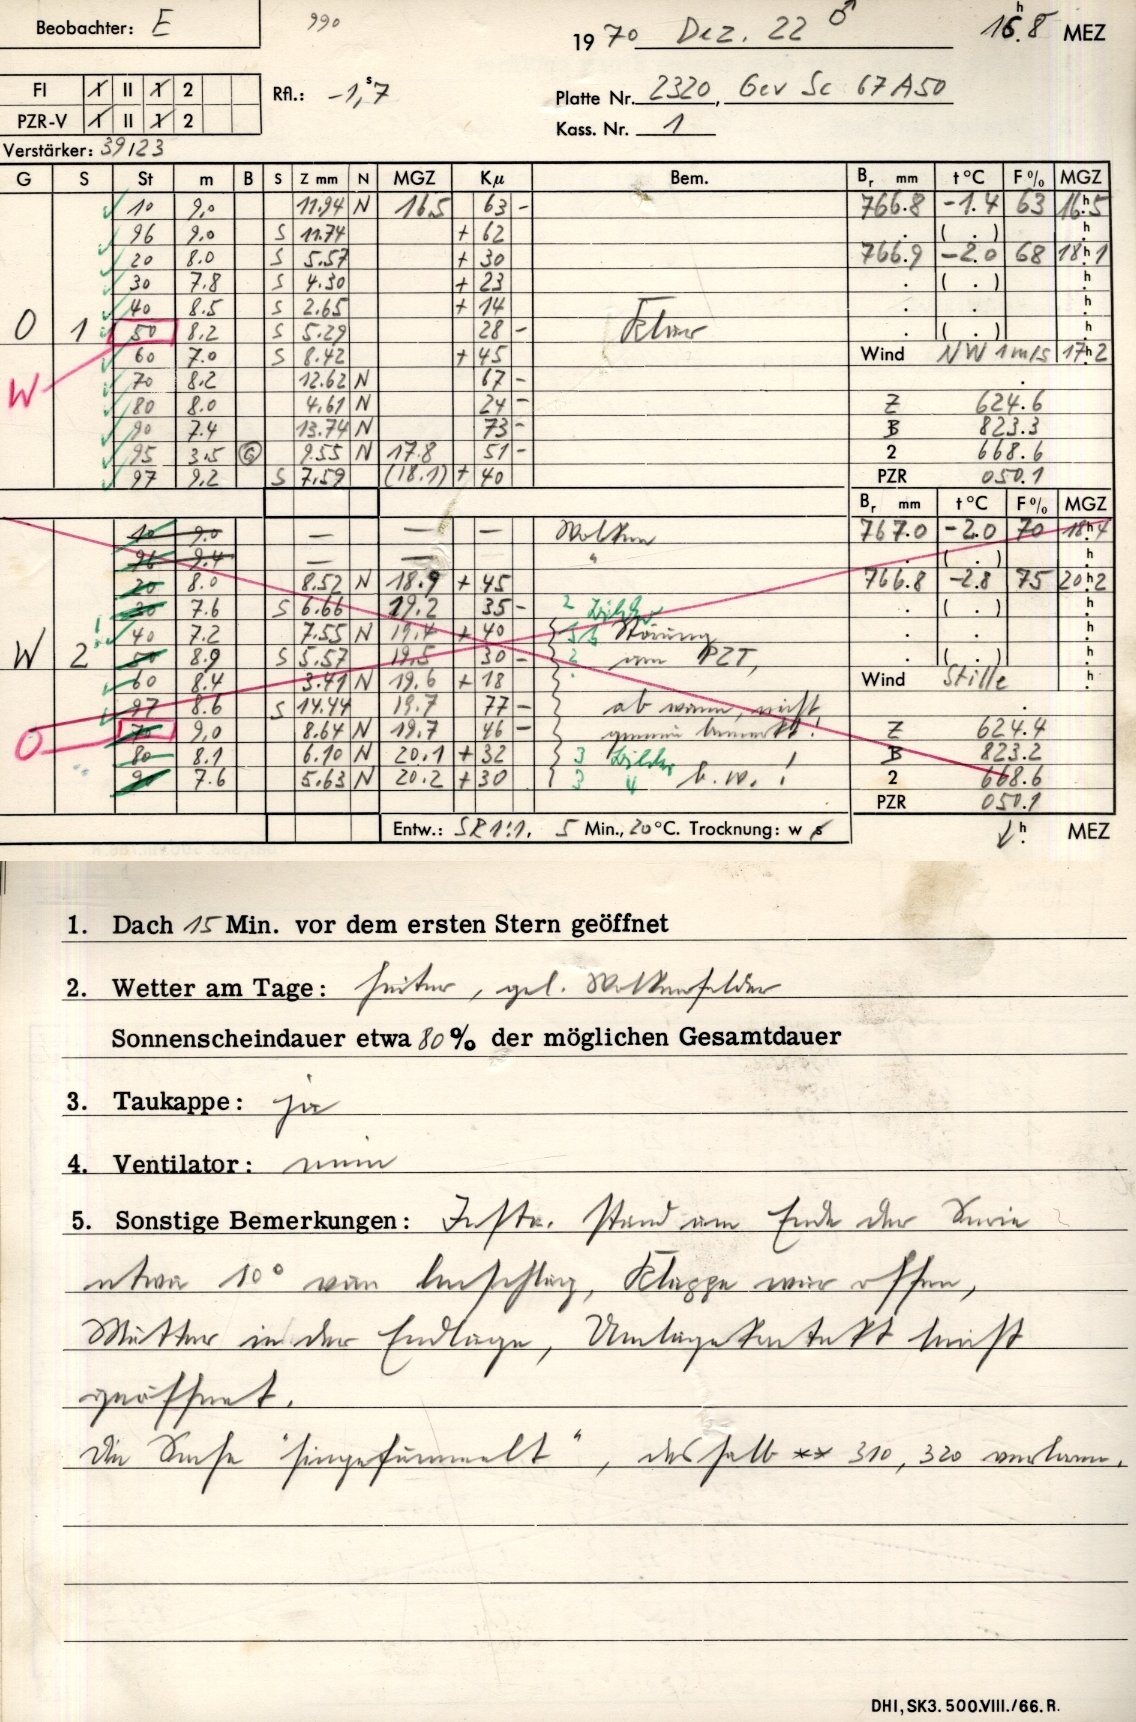 Beobachter: E
990
1970 Dez. 22 ♂ 16.8 h MEZ
FI I II 1 2
PZR-V I II 1 2
Rfl.: -1,7 s
Platte Nr. 2320, Gev Sc 67A50
Kass. Nr. 1
Verstärker: 39123
G S St m B S Z mm N MGZ Kμ Bem. Br mm t °C F % MGZ
10 9,0 11.94 N 16.5 63 - 766.8 -1.4 63 16h5
96 9.0 S 11.74 + 62 . ( . ) h
20 8.0 S 5.57 + 30 766.9 -2.0 68 18h1
30 7.8 S 4.30 + 23 . ( . ) h
40 8.5 S 2.65 + 14 . . h
O 1 50 8.2 S 5.29 28 - Klar . ( . ) h
60 7.0 S 8.42 + 45 Wind NW 1m/s 17h2
W 70 8.2 12.62 N 67 -
80 8.0 4.61 N 24 - Z 624.6
90 7.4 13.74 N 73 - B 823.3
95 3.5 G 9.55 N 17.8 51 - 2 668.6
97 9.2 S 7.59 (18.1) + 40 PZR 050.1
Br mm t °C F % MGZ
10 9.0 — — — Wolken 767.0 -2.0 70 18h4
96 9.4 — — " . ( . ) h
20 8.0 8.52 N 18.9 + 45 766.8 -2.8 75 20h2
30 7.6 S 6.66 19.2 35 - 2 Bilder . ( . ) h
! 40 7.2 7.55 N 19.4 + 40 Störung . . h
W 2 50 8.9 S 5.57 19.5 30 - 2 am PZT, . ( . ) h
60 8.4 3.41 N 19.6 + 18 Wind Stille h
97 8.6 S 14.44 19.7 77 - ab wann, nicht
O 70 9,0 8.64 N 19.7 46 - genau bemerkt! Z 624.4
80 8.1 6.10 N 20.1 + 32 3 Bilder B 823.2
90 7.6 5.63 N 20.2 + 30 3 4 b.w.! 2 668.6
PZR 050.1
Entw.: SR 1:1, 5 Min., 20°C. Trocknung: w s h MEZ
1. Dach 15 Min. vor dem ersten Stern geöffnet
2. Wetter am Tage: heiter, gel. Wolkenfelder
Sonnenscheindauer etwa 80 % der möglichen Gesamtdauer
3. Taukappe: ja
4. Ventilator: nein
5. Sonstige Bemerkungen: Instr. stand am Ende der Serie
etwa 10° vom Anschlag, Klappe war offen,
Mutter in der Endlage, Umlagekontakt
geöffnet.
Die Sache "hingefummelt", deshalb ** 310, 320 verloren.
DHI, SK3. 500.VIII./66. R.